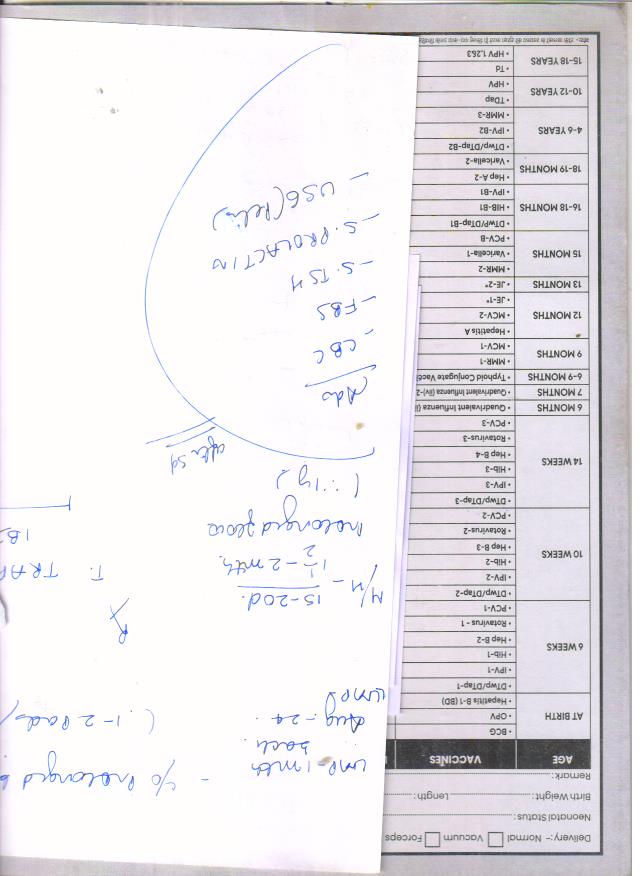 Delivery:- Normal Vacuum Forceps
Neonatal Status:
Birth Weight: Length:
Remark:
AGE VACCINES
AT BIRTH
• BCG
• OPV
• Hepatitis B-1 (BD)
6 WEEKS
• DTwp/DTap-1
• IPV-1
• Hib-1
• Hep B-2
• Rotavirus - 1
• PCV-1
10 WEEKS
• DTwp/DTap-2
• IPV-2
• Hib-2
• Hep B-3
• Rotavirus-2
• PCV-2
14 WEEKS
• DTwp/DTap-3
• IPV-3
• Hib-3
• Hep B-4
• Rotavirus-3
• PCV-3
6 MONTHS • Quadrivalent Influenza
7 MONTHS • Quadrivalent Influenza (iv)-2
6-9 MONTHS • Typhoid Conjugate Vacci
9 MONTHS
• MMR-1
• MCV-1
12 MONTHS
• Hepatitis A
• MCV-2
• JE-1*
13 MONTHS • JE-2*
15 MONTHS
• MMR-2
• Varicella-1
• PCV-B
16-18 MONTHS
• DTwP/DTap-B1
• HIB-B1
• IPV-B1
18-19 MONTHS
• Hep A-2
• Varicella-2
4-6 YEARS
• DTwp/DTap-B2
• IPV-B2
• MMR-3
10-12 YEARS
• TDap
• HPV
15-18 YEARS
• Td
• HPV 1,2&3
LMP - 1 mth back
- c/o Prolonged b
Aug - 24
LMP
( 1-2 Pads/
Rx
M/H - 15-20d.
1 1/2 - 2 mth
T. TRAP
Prolonged flow
(∵ 1y)
after
Adv
- CBC
- FBS
- S. TSH
- S. PROLACTIN
- USG (Pelvis)